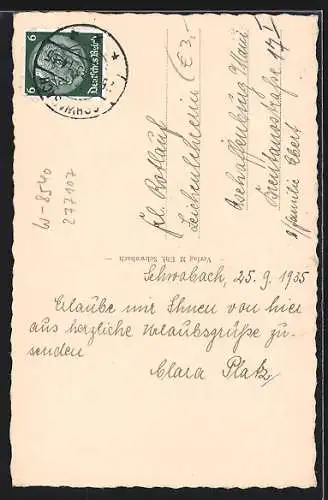 6
6
Deutsches Reich
SCHWABACH
Frl. Rotlauf
Zeichenlehrerin
Aschaffenburg Main
Brentanostraße 17 I
b/Familie Ebert
W-8540
277107
— Verlag M. Uhl, Schwabach —
Schwabach, 25.9.1935
Erlaube mir Ihnen von hier
aus herzliche Urlaubsgrüße zu-
senden
Clara Platz